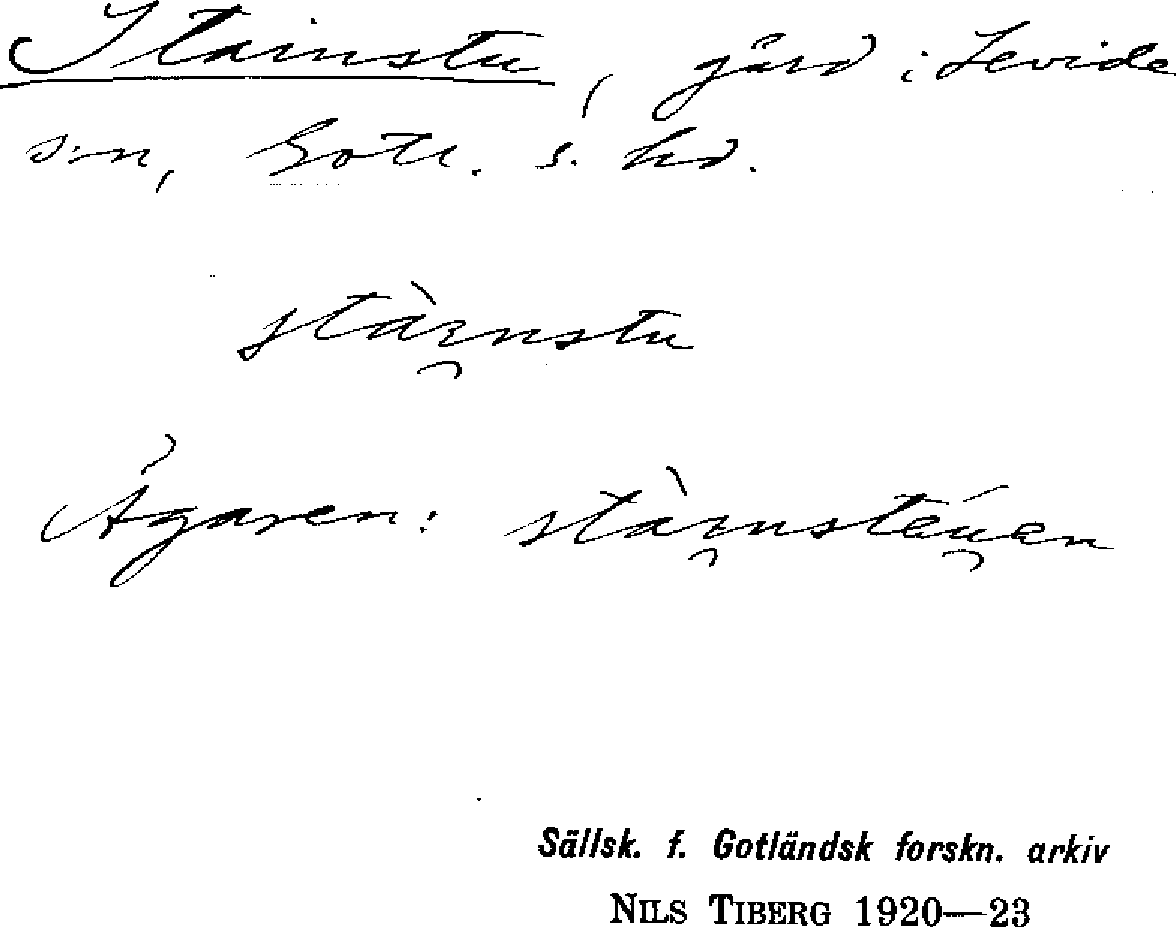 Stainstu, gård i Levide
s:n, Gotl. s. hd.
stàı̯nstu
Ägaren: stàı̯nstéu̯en
Sällsk. f. Gotländsk forskn. arkiv
NILS TIBERG 1920—23